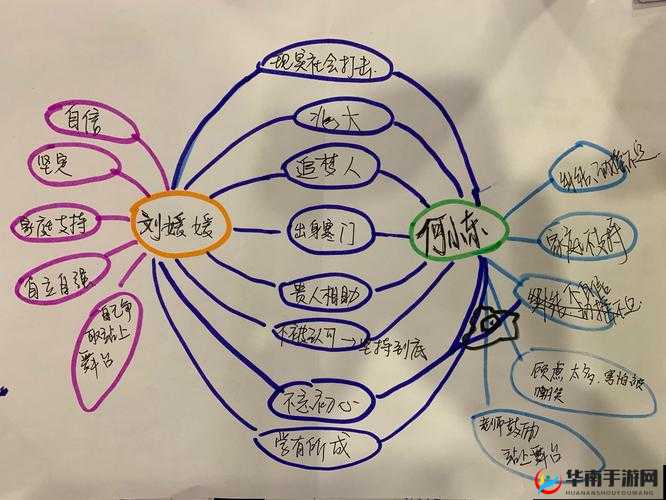 现实社会打击
北大
追梦人
出身寒门
贵人相助
不被认可→坚持到底
不忘初心
学有所成
刘媛媛
自信
坚定
家庭支持
自立自强
自己争
取站上
舞台
何小东
家庭不支持
顾虑太多,害怕被
嘲笑
老师鼓励
站上舞台
华南手游网
HUANANSHOUYOUWANG